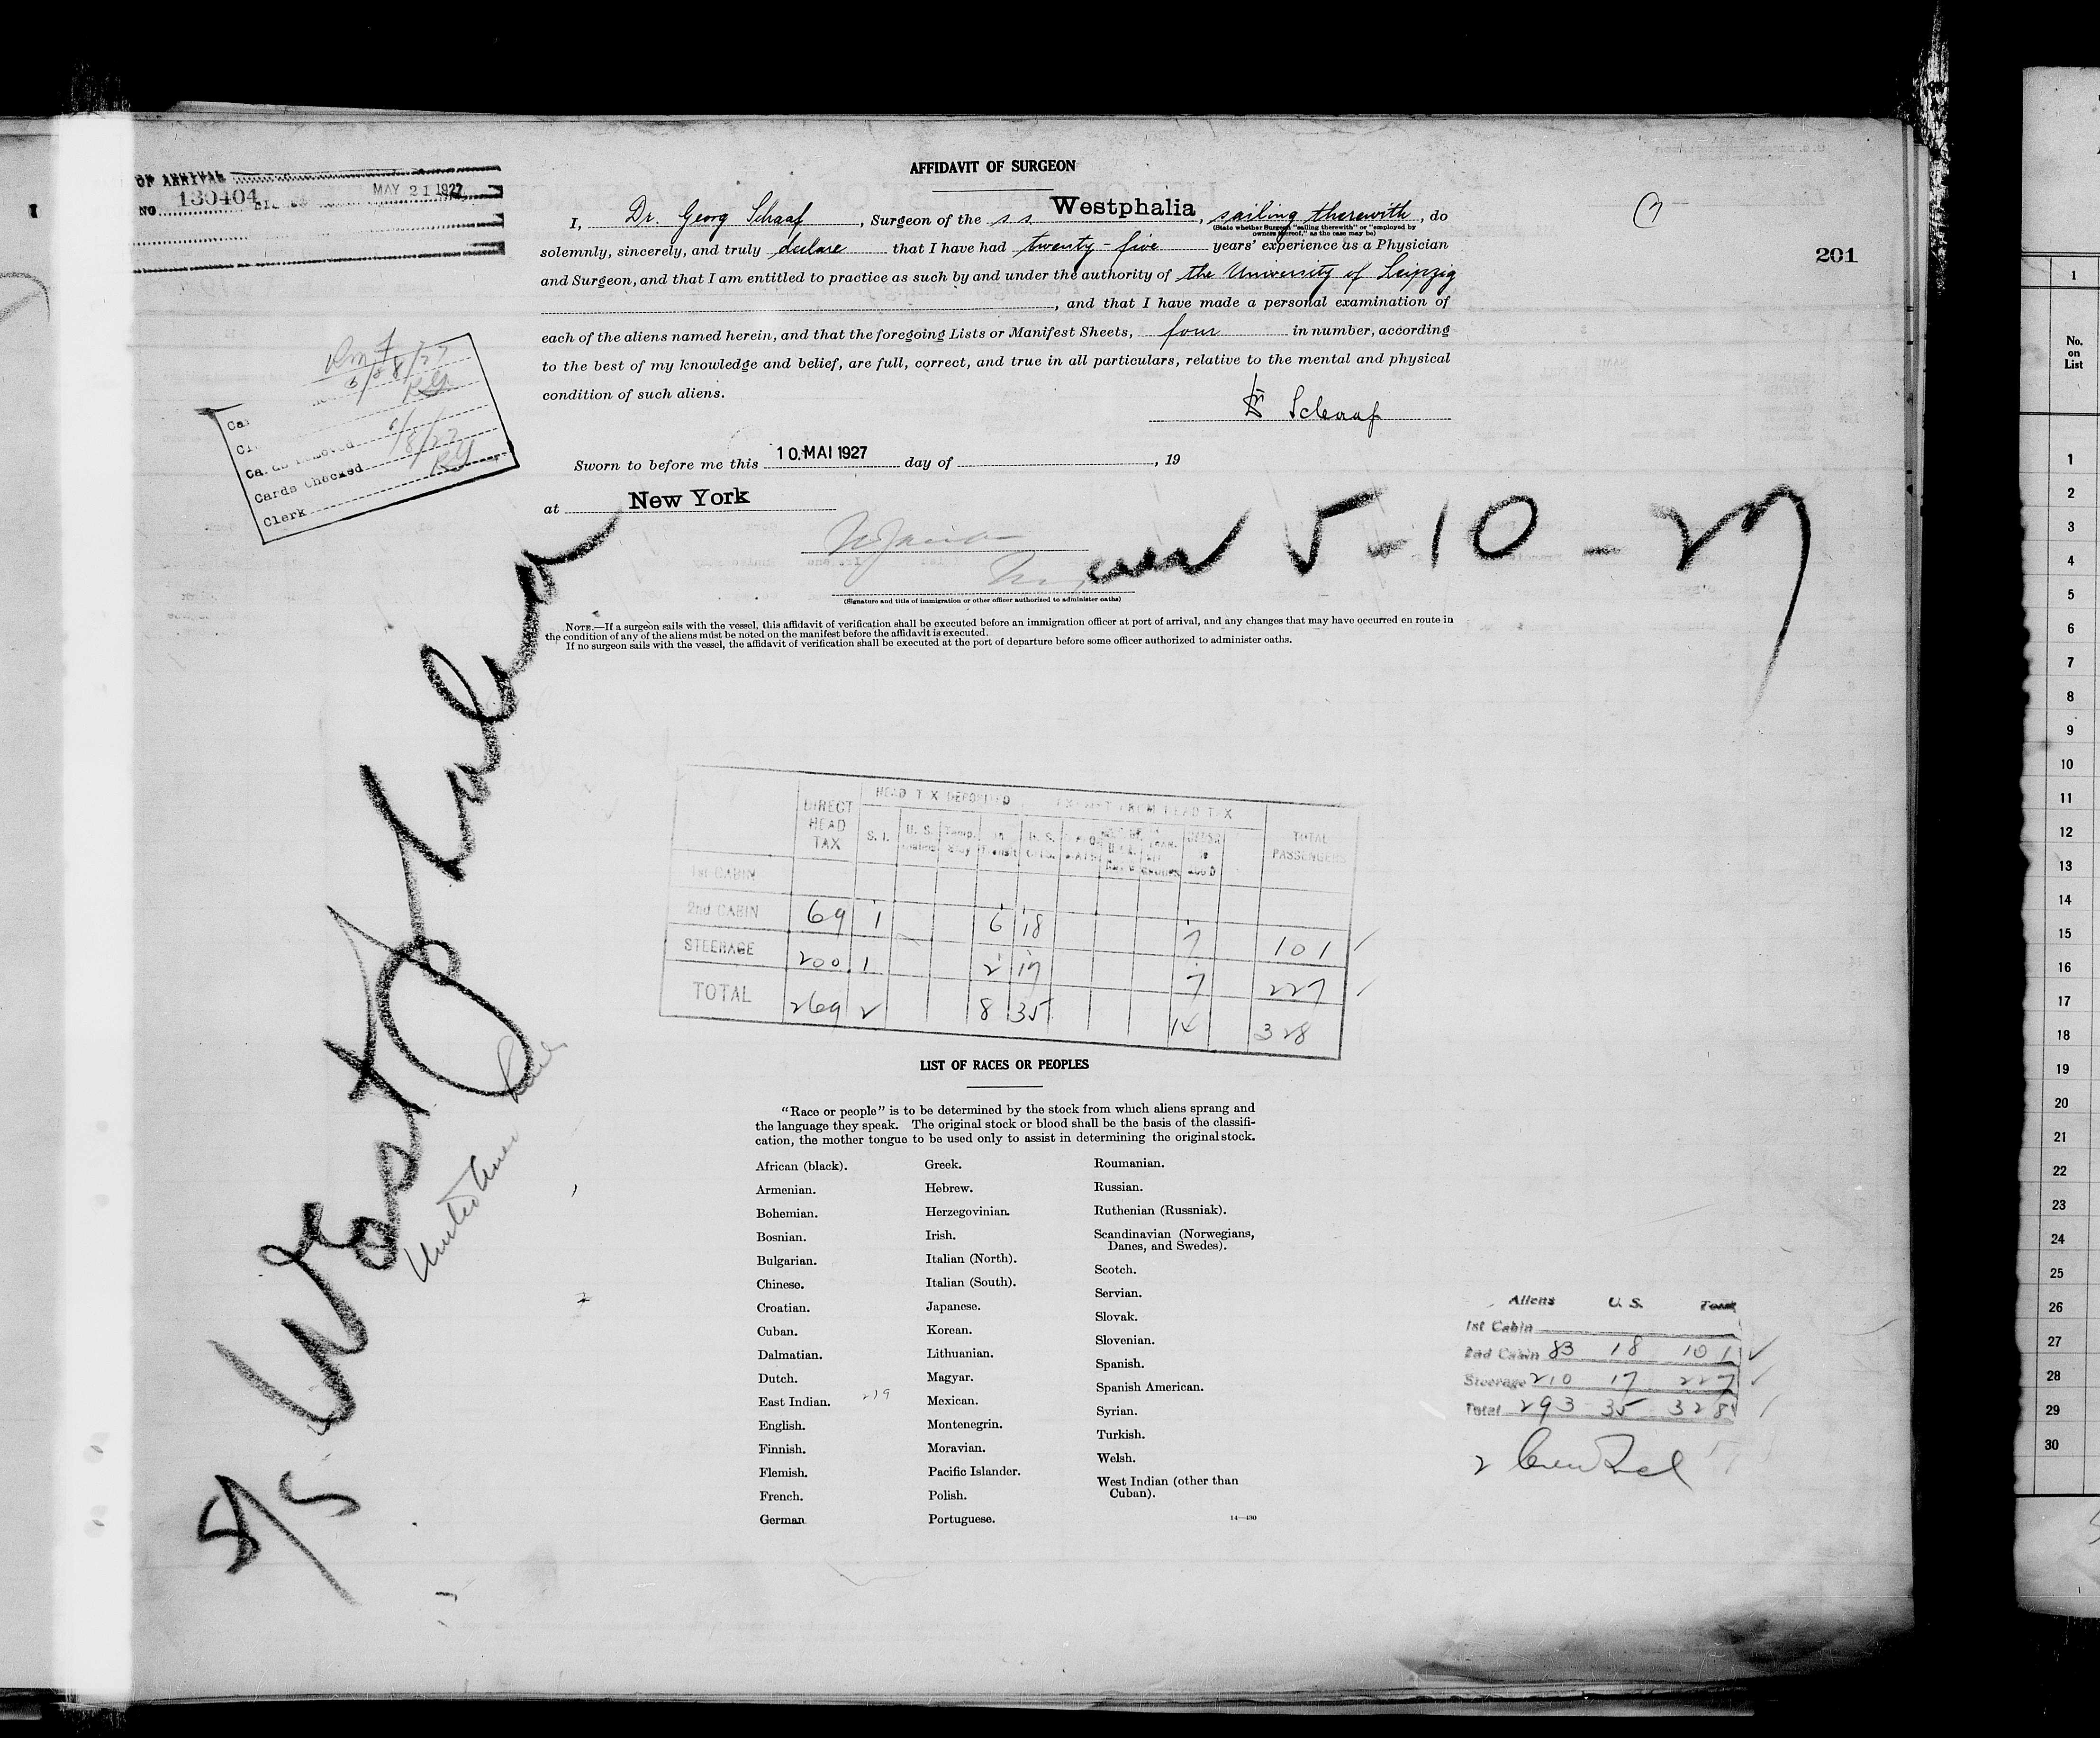 OF ARRIVAL
NO 130404 MAY 21 1927
AFFIDAVIT OF SURGEON
I, Dr. Georg Schaaf, Surgeon of the s.s. Westphalia, sailing therewith, do
(State whether Surgeon "sailing therewith" or "employed by
owners thereof," as the case may be)
solemnly, sincerely, and truly declare that I have had twenty-five years' experience as a Physician
and Surgeon, and that I am entitled to practice as such by and under the authority of the University of Leipzig
, and that I have made a personal examination of
each of the aliens named herein, and that the foregoing Lists or Manifest Sheets, four in number, according
to the best of my knowledge and belief, are full, correct, and true in all particulars, relative to the mental and physical
condition of such aliens.
Dr Schaaf
Sworn to before me this 10. MAI 1927 day of , 19
at New York
(Signature and title of immigration or other officer authorized to administer oaths)
201
Cards Checked 6/8/27
Clerk
5-10-27
NOTE.—If a surgeon sails with the vessel, this affidavit of verification shall be executed before an immigration officer at port of arrival, and any changes that may have occurred en route in
the condition of any of the aliens must be noted on the manifest before the affidavit is executed.
If no surgeon sails with the vessel, the affidavit of verification shall be executed at the port of departure before some officer authorized to administer oaths.
S/S Westphalia
DIRECT HEAD TAX
HEAD TAX DEPOSITED
EXEMPT FROM HEAD TAX
TOTAL PASSENGERS
S. I. U. S. Temp. Stay In Transit U. S.
1st CABIN
2nd CABIN 69 1 6 18 7 101
STEERAGE 200 1 2 17 7 227
TOTAL 269 2 8 35 14 328
LIST OF RACES OR PEOPLES
"Race or people" is to be determined by the stock from which aliens sprang and
the language they speak. The original stock or blood shall be the basis of the classifi-
cation, the mother tongue to be used only to assist in determining the original stock.
African (black).
Armenian.
Bohemian.
Bosnian.
Bulgarian.
Chinese.
Croatian.
Cuban.
Dalmatian.
Dutch.
East Indian.
English.
Finnish.
Flemish.
French.
German
Greek.
Hebrew.
Herzegovinian.
Irish.
Italian (North).
Italian (South).
Japanese.
Korean.
Lithuanian.
Magyar.
Mexican.
Montenegrin.
Moravian.
Pacific Islander.
Polish.
Portuguese.
Roumanian.
Russian.
Ruthenian (Russniak).
Scandinavian (Norwegians,
Danes, and Swedes).
Scotch.
Servian.
Slovak.
Slovenian.
Spanish.
Spanish American.
Syrian.
Turkish.
Welsh.
West Indian (other than
Cuban).
14—430
Aliens U. S. Total
1st Cabin
2nd Cabin 83 18 101
Steerage 210 17 227
Total 293 35 328
1
No.
on
List
1
2
3
4
5
6
7
8
9
10
11
12
13
14
15
16
17
18
19
20
21
22
23
24
25
26
27
28
29
30